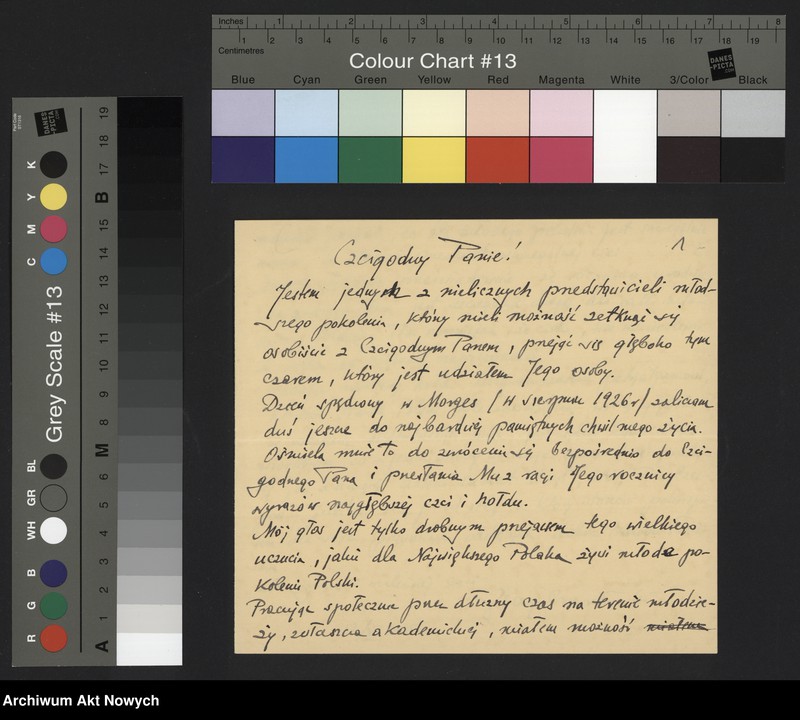 Inches 1 2 3 4 5 6 7 8
1 2 3 4 5 6 7 8 9 10 11 12 13 14 15 16 17 18 19
Centimetres
Colour Chart #13
DANES
PICTA
.COM
Blue Cyan Green Yellow Red Magenta White 3/Color Black
Grey Scale #13
DANES
PICTA
.COM
R G B WH GR BL C M Y K
A 1 2 3 4 5 6 M 8 9 10 11 12 13 14 15 B 17 18 19
1
Czcigodny Panie!
Jestem jednym z nielicznych przedstawicieli młod-
szego pokolenia, który mieli możność zetknąć się
osobiście z Czcigodnym Panem, przejąć się głęboko tym
czarem, który jest udziałem Jego osoby.
Dzień spędzony w Morges /w sierpniu 1926r/ zaliczam
dziś jeszcze do najbardziej pamiętnych chwil mego życia.
Ośmiela mnie to do zwrócenia się bezpośrednio do Czci-
godnego Pana i przesłania Mu z racji Jego rocznicy
wyrazów najgłębszej czci i hołdu.
Mój głos jest tylko drobnym przejawem tego wielkiego
uczucia, jakie dla Największego Polaka żywi młode po-
kolenie Polski.
Pracując społecznie przez dłuższy czas na terenie młodzie-
ży, zwłaszcza akademickiej, miałem możność miałem
Archiwum Akt Nowych